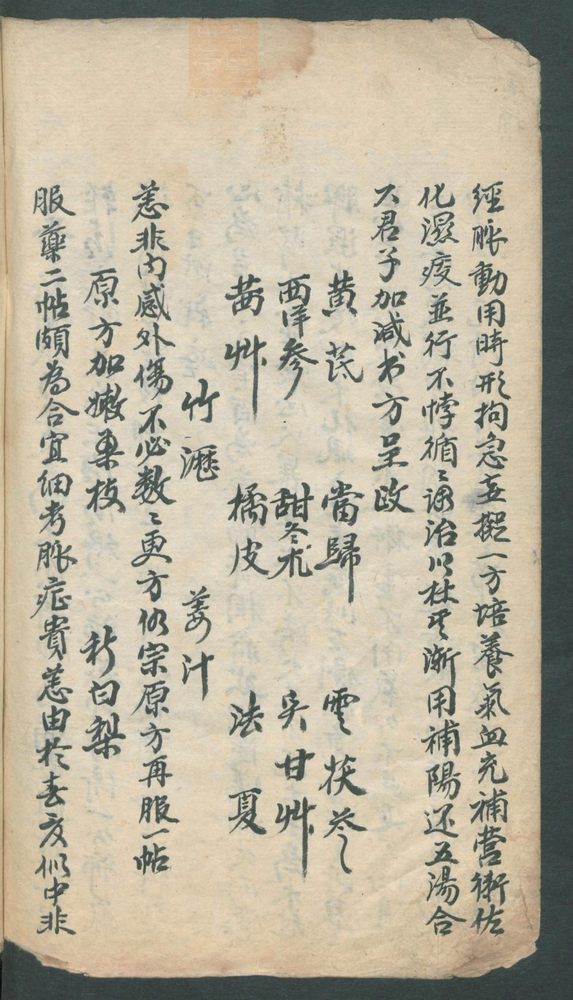 經脈動用時形拘急妄擬一方培養氣血充補營衛佐
化濕痰並行不悖循〻調治以杜其漸用補陽还五湯合
六君子加減书方呈政
黄芪 當歸 雲茯苓
西洋参 甜冬朮 炙甘艸
茜艸 橘皮 法夏
竹瀝 姜汁
恙非内感外傷不必数〻更方仍宗原方再服一帖
原方加嫩桑枝 秋白梨
服藥二帖頗為合宜细考脉症貴恙由於春友似中非